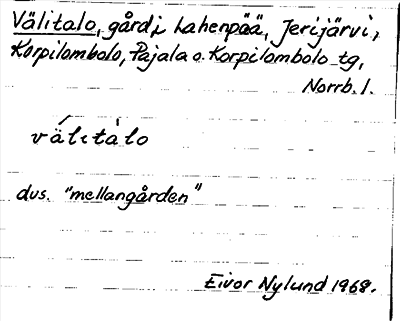 Välitalo, gård i Lahenpää, Jerijärvi,
Korpilombolo, Pajala o. Korpilombolo tg,
Norrb. l.
vä́litàlo
dvs. "mellangården"
Eivor Nylund 1968.